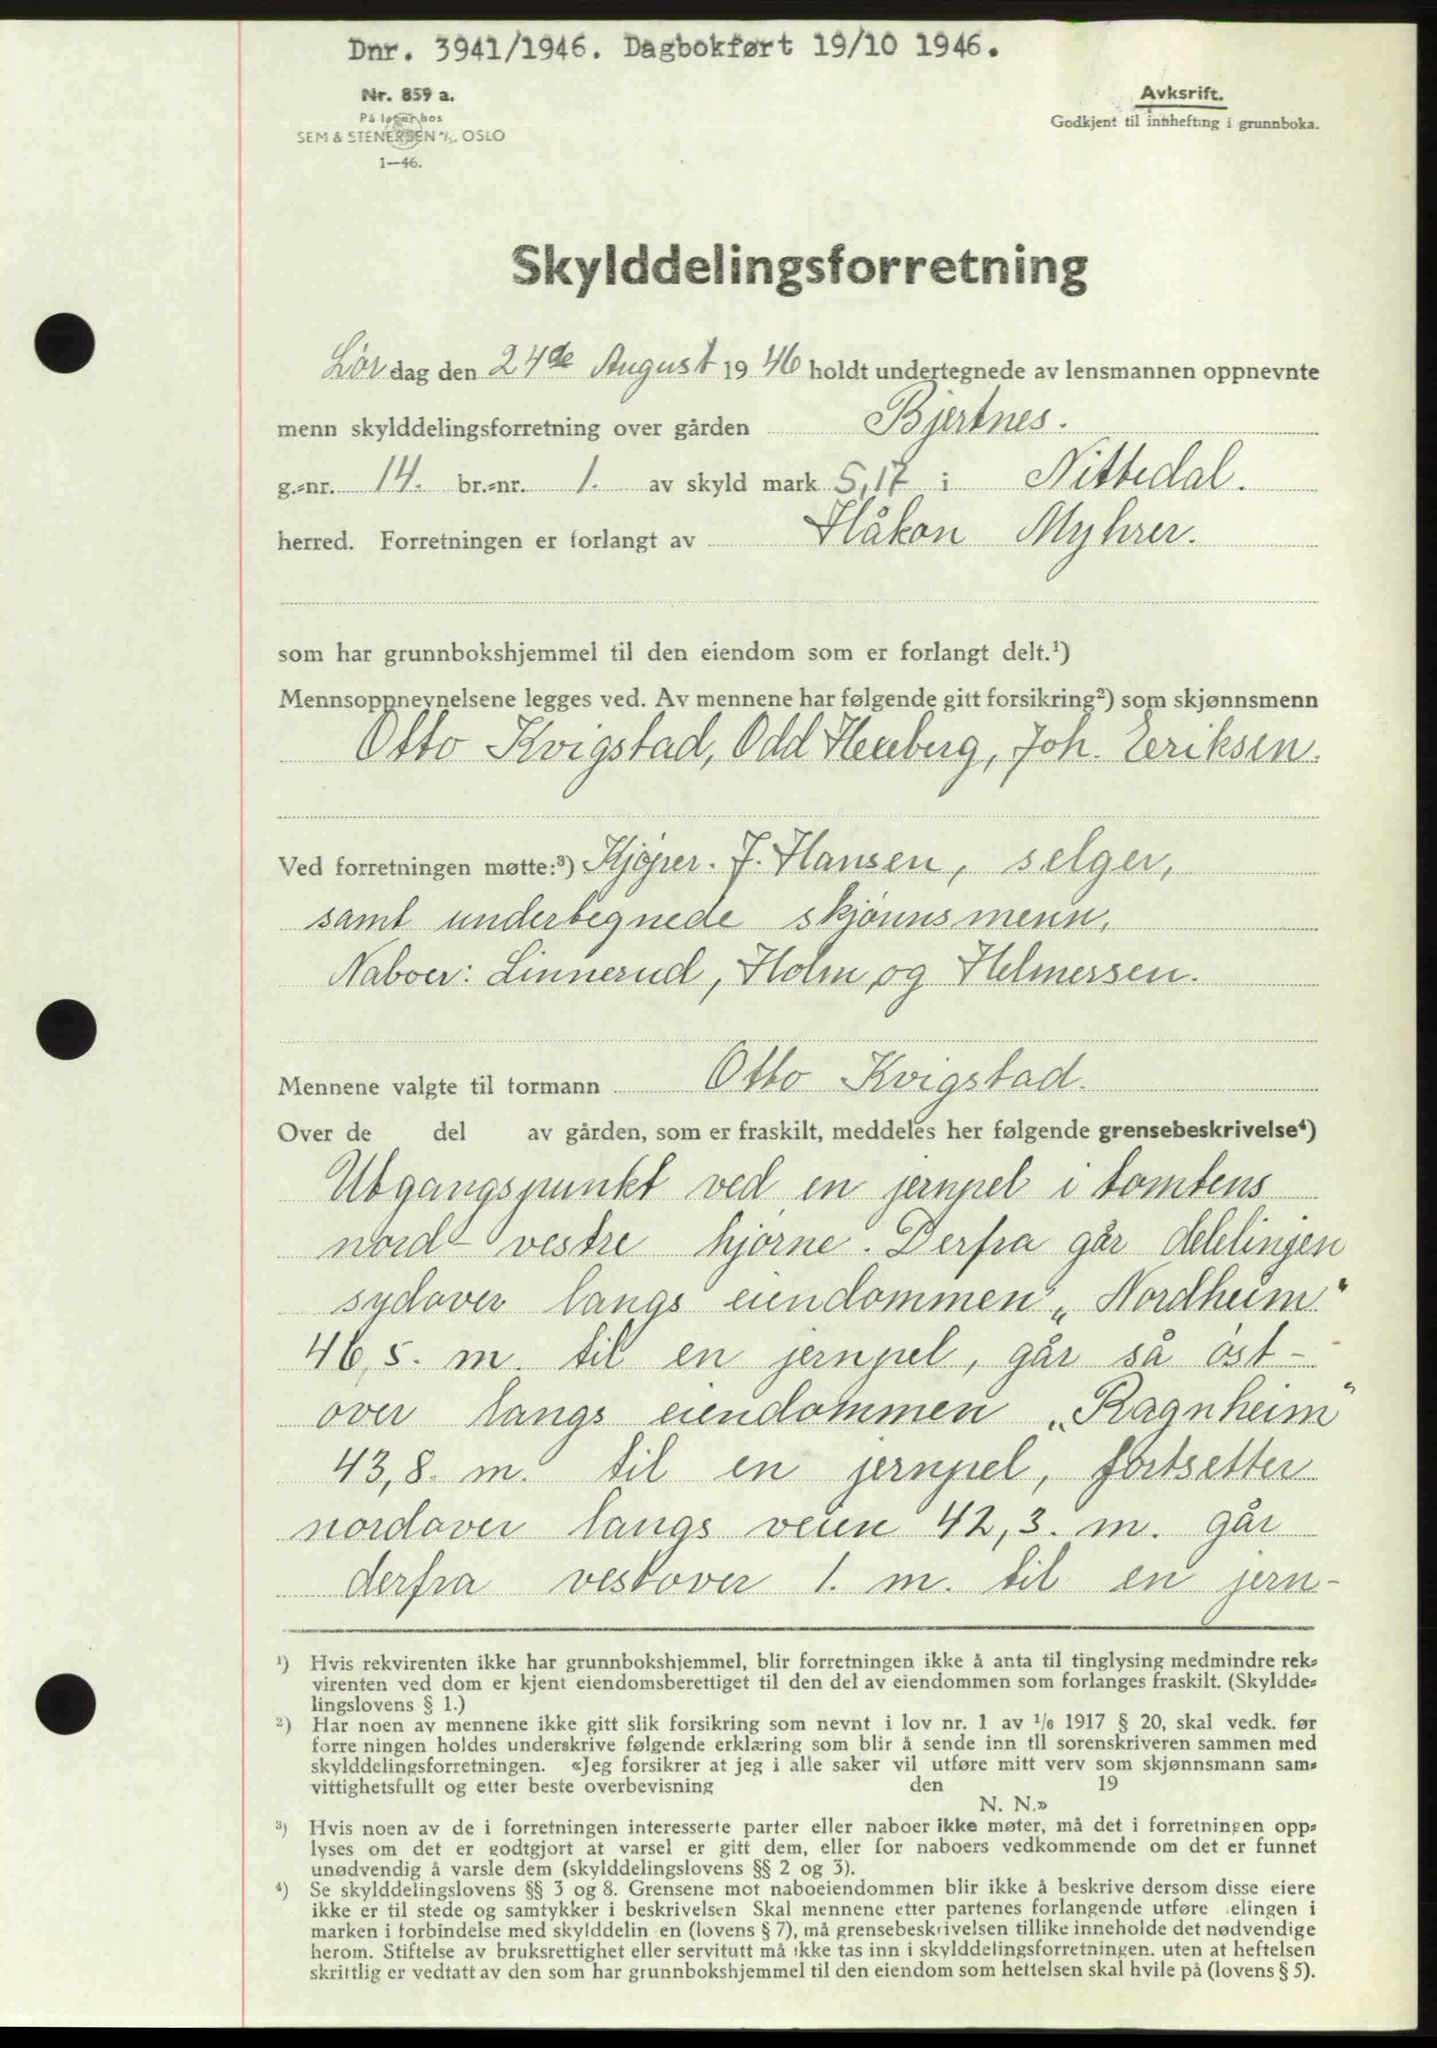 Dnr. 3941/1946. Dagbokført 19/10 1946.
Nr. 859 a.
På lager hos
SEM & STENERSEN A/S. OSLO
1—46.
Avksrift.
Godkjent til innhefting i grunnboka.
Skylddelingsforretning
Lør dag den 24de August 1946 holdt undertegnede av lensmannen oppnevnte
menn skylddelingsforretning over gården Bjertnes.
g.-nr. 14. br.-nr. 1. av skyld mark 5,17 i Nittedal.
herred. Forretningen er forlangt av Håkon Myhrer.
som har grunnbokshjemmel til den eiendom som er forlangt delt.¹)
Mennsoppnevnelsene legges ved. Av mennene har følgende gitt forsikring²) som skjønnsmenn
Otto Kvigstad, Odd Hexeberg, Joh. Eeriksen.
Ved forretningen møtte:³) Kjøper. J. Hansen, selger,
samt undertegnede skjønnsmenn.
Naboer: Linnerud, Holm og Helmersen.
Mennene valgte til formann Otto Kvigstad.
Over de del av gården, som er fraskilt, meddeles her følgende grensebeskrivelse⁴)
Utgangspunkt ved en jernpel i tomtens
nord-vestre hjørne. Derfra går delelinjen
sydover langs eiendommen „Nordheim"
46,5. m. til en jernpel, går så øst-
over langs eiendommen „Ragnheim"
43,8. m. til en jernpel, fortsetter
nordover langs veien 42,3. m. går
derfra vestover 1. m. til en jern-
¹) Hvis rekvirenten ikke har grunnbokshjemmel, blir forretningen ikke å anta til tinglysing medmindre rek-
virenten ved dom er kjent eiendomsberettiget til den del av eiendommen som forlanges fraskilt. (Skyldde-
lingslovens § 1.)
²) Har noen av mennene ikke gitt slik forsikring som nevnt i lov nr. 1 av 1/6 1917 § 20, skal vedk. før
forre ningen holdes underskrive følgende erklæring som blir å sende inn til sorenskriveren sammen med
skylddelingsforretningen. «Jeg forsikrer at jeg i alle saker vil utføre mitt verv som skjønnsmann sam-
vittighetsfullt og etter beste overbevisning den 19
N. N.»
³) Hvis noen av de i forretningen interesserte parter eller naboer ikke møter, må det i forretningen opp-
lyses om det er godtgjort at varsel er gitt dem, eller for naboers vedkommende om det er funnet
unødvendig å varsle dem (skylddelingslovens §§ 2 og 3).
⁴) Se skylddelingslovens §§ 3 og 8. Grensene mot naboeiendommen blir ikke å beskrive dersom disse eiere
ikke er til stede og samtykker i beskrivelsen Skal mennene etter partenes forlangende utføre elingen i
marken i forbindelse med skylddelin en (lovens § 7), må grensebeskrivelsen tillike inneholde det nødvendige
herom. Stiftelse av bruksrettighet eller servitutt må ikke tas inn i skylddelingsforretningen. uten at heftelsen
skriftlig er vedtatt av den som har grunnbokshjemmel til den eiendom som heftelsen skal hvile på (lovens § 5).